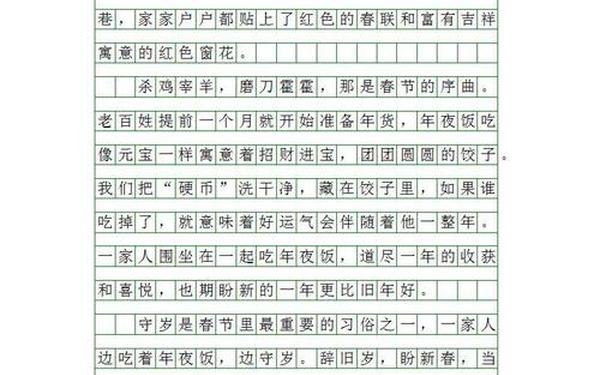 巷，家家户户都贴上了红色的春联和富有吉祥
寓意的红色窗花。
杀鸡宰羊，磨刀霍霍，那是春节的序曲。
老百姓提前一个月就开始准备年货，年夜饭吃
像元宝一样寓意着招财进宝，团团圆圆的饺子。
我们把“硬币”洗干净，藏在饺子里，如果谁
吃掉了，就意味着好运气会伴随着他一整年。
一家人围坐在一起吃年夜饭，道尽一年的收获
和喜悦，也期盼新的一年更比旧年好。
守岁是春节里最重要的习俗之一，一家人
边吃着年夜饭，边守岁。辞旧岁，盼新春，当